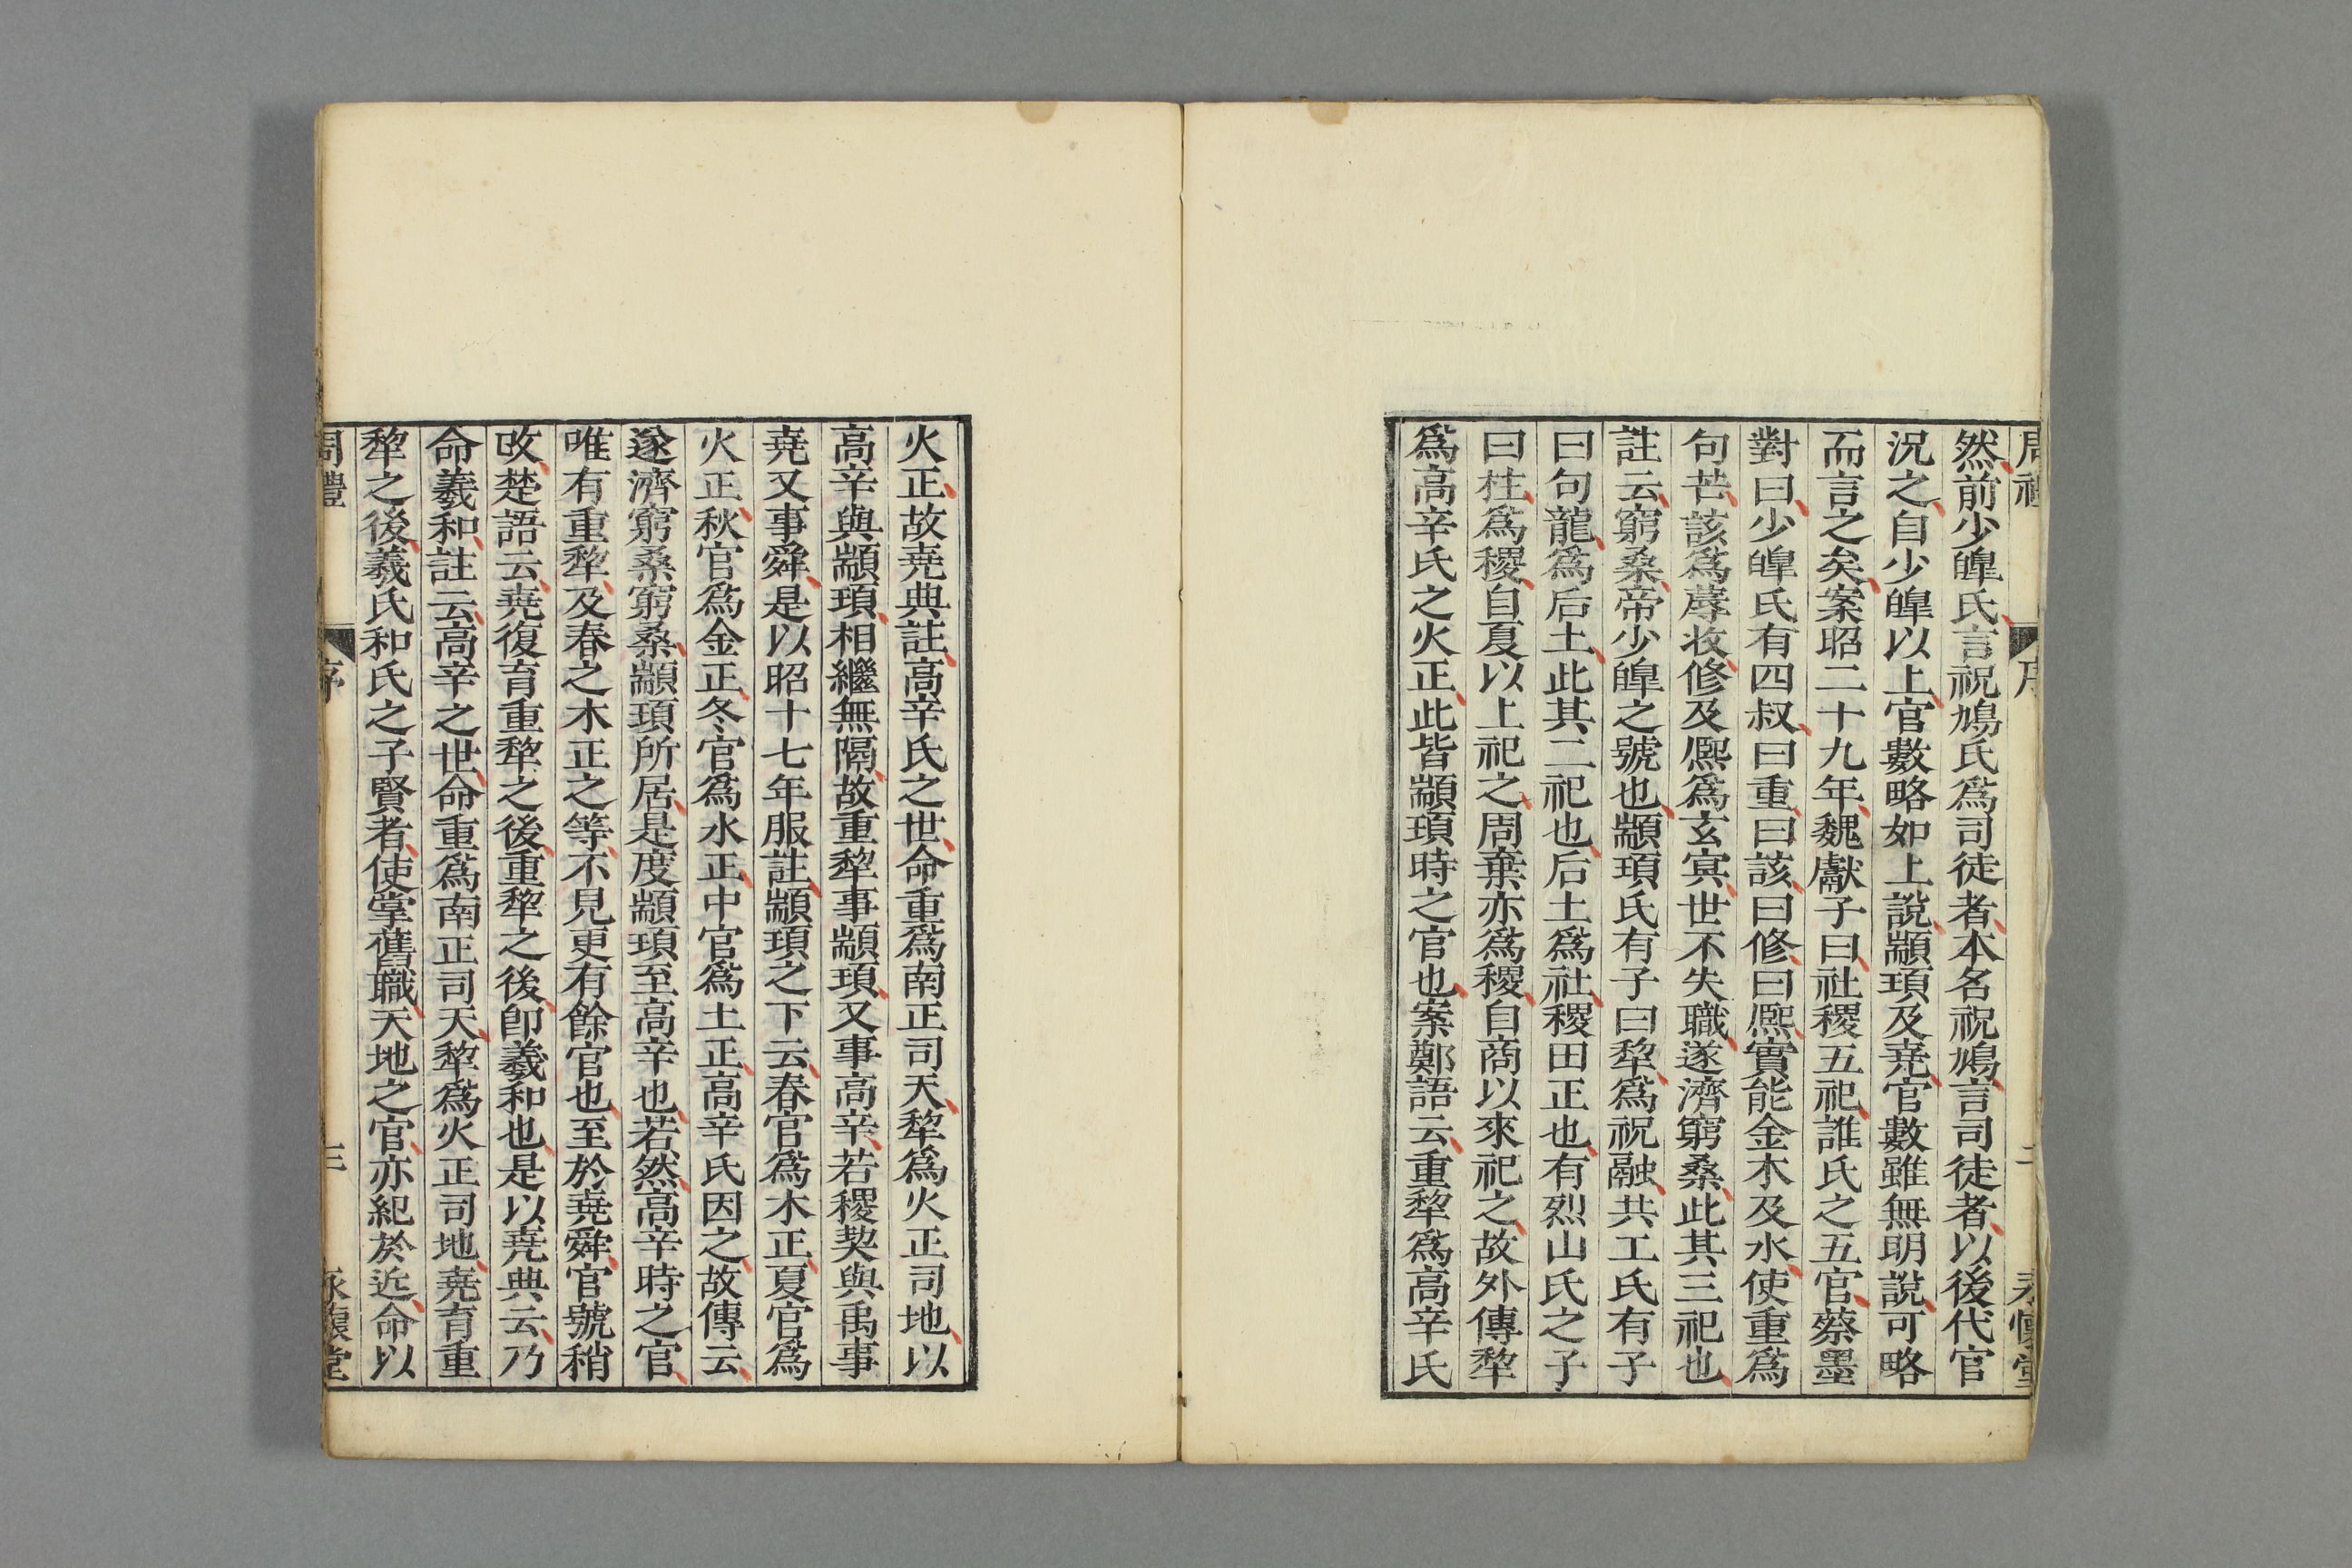 周禮
序
二
永懷堂
然前少皥氏言祝鳩氏爲司徒者本名祝鳩言司徒者以後代官
況之自少皥以上官數略如上說顓頊及堯官數雖無明說可略
而言之矣案昭二十九年魏獻子曰社稷五祀誰氏之五官蔡墨
對曰少皥氏有四叔曰重曰該曰修曰熈實能金木及水使重爲
句芒該爲蓐收修及熈爲玄冥世不失職遂濟窮桑此其三祀也
註云窮桑帝少皥之號也顓頊氏有子曰犂爲祝融共工氏有子
曰句龍爲后土此其二祀也后土爲社稷田正也有烈山氏之子
曰柱爲稷自夏以上祀之周棄亦爲稷自商以來祀之故外傳犂
爲高辛氏之火正此皆顓頊時之官也案鄭語云重犂爲高辛氏
火正故堯典註高辛氏之世命重爲南正司天犂爲火正司地以
高辛與顓頊相繼無隔故重犂事顓頊又事高辛若稷契與禹事
堯又事舜是以昭十七年服註顓頊之下云春官爲木正夏官爲
火正秋官爲金正冬官爲水正中官爲土正高辛氏因之故傳云
遂濟窮桑窮桑顓頊所居是度顓頊至高辛也若然高辛時之官
唯有重犂及春之木正之等不見更有餘官也至於堯舜官號稍
改楚語云堯復育重犂之後重犂之後卽羲和也是以堯典云乃
命羲和註云高辛之世命重爲南正司天犂爲火正司地堯育重
犂之後羲氏和氏之子賢者使掌舊職天地之官亦紀於近命以
周禮
序
三
永懷堂